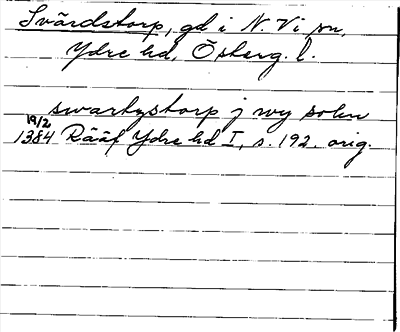 Svärdstorp, gd i N. Vi sn,
Ydre hd, Österg. l.
swartzstorp j wy sokn
19/2
1384 Rääf Ydre hd I, s. 192. orig.